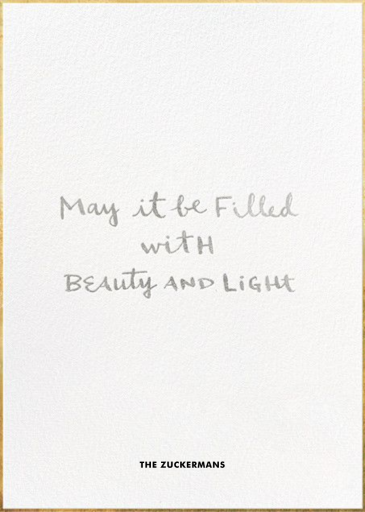 May it be Filled
witH
BEAuty AND LiGHt
THE ZUCKERMANS